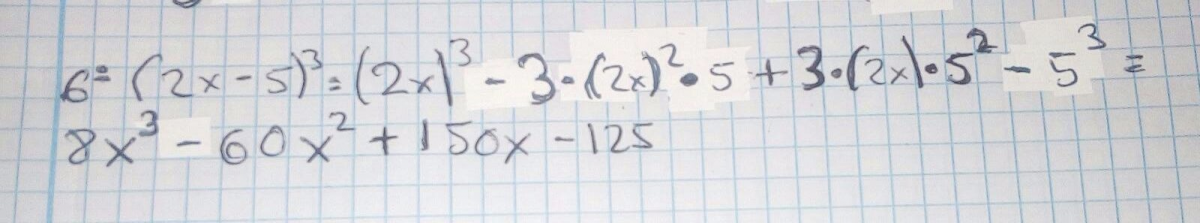 6º (2x-5)³=(2x)³-3·(2x)²·5+3·(2x)·5²-5³=
8x³-60x²+150x-125